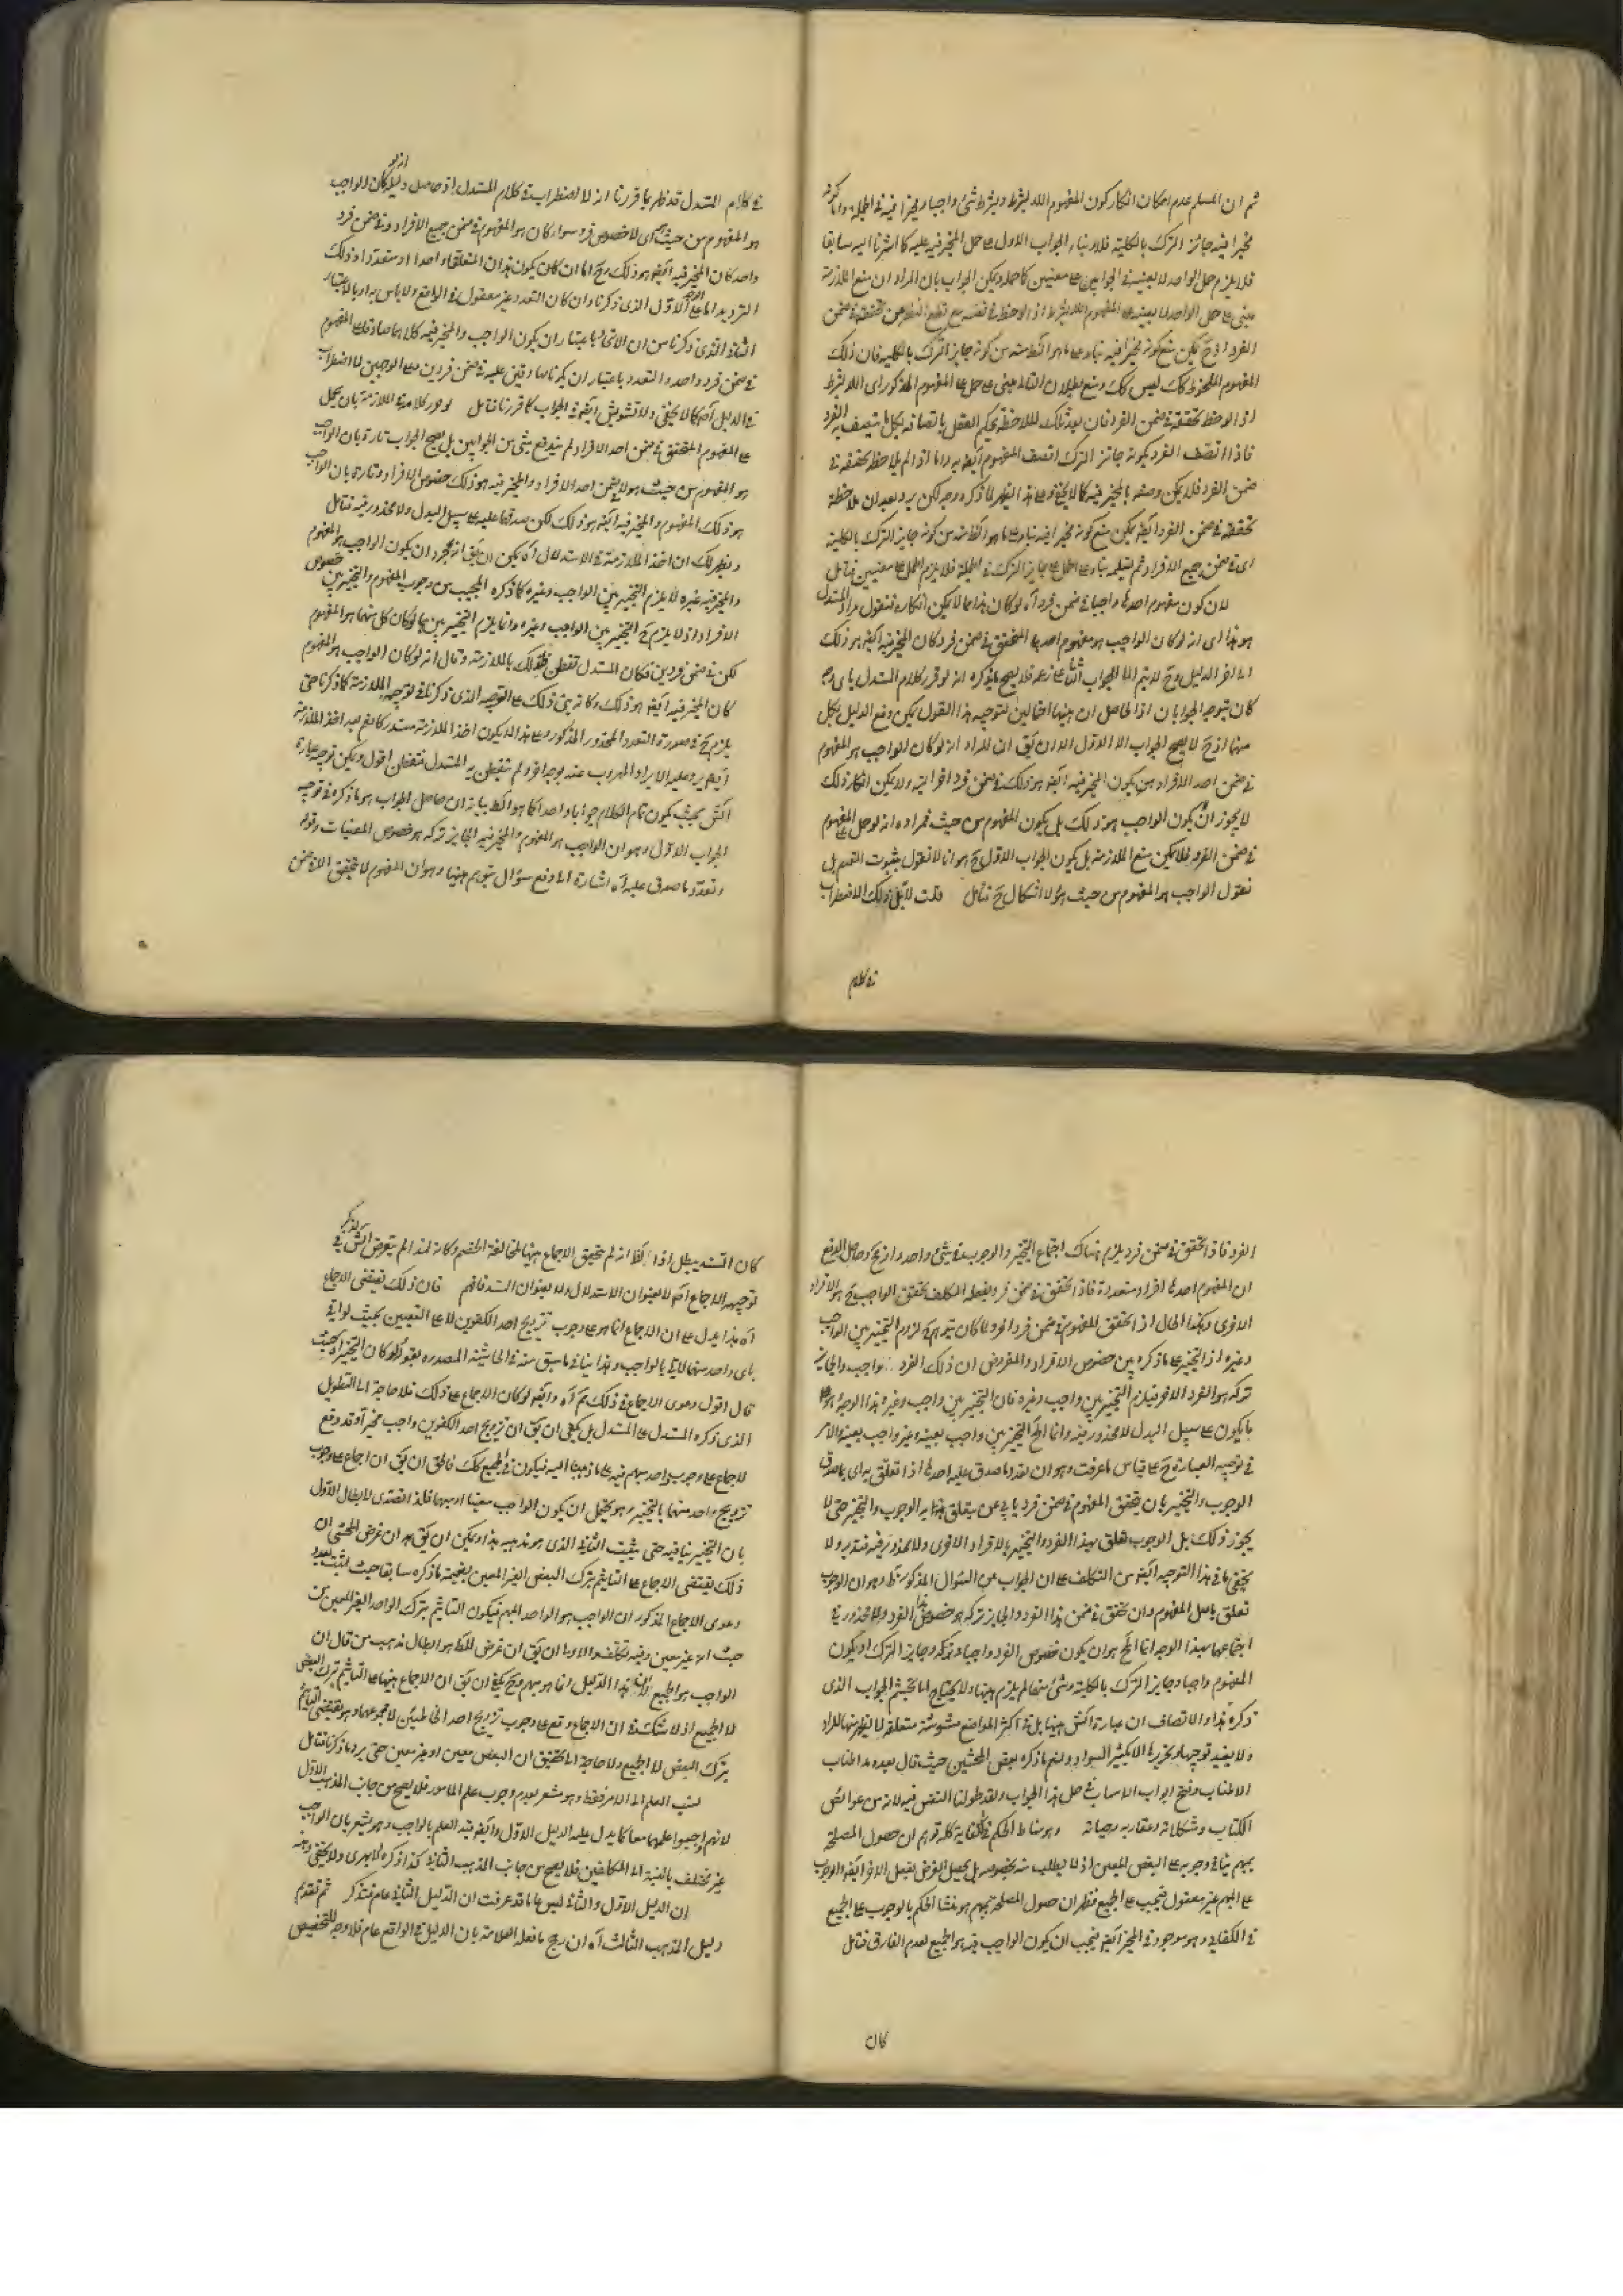 ثم ان المسلم عدم امكان انكار كون المفهوم اللا بشرط وبشرط شئ واجبا ومخيرا فيه في الجملة واما كونه
مخيرا فيه جائز الترك بالكلية فلا بناء الجواب الاول على حمل المخير فيه عليه كما اشرنا اليه سابقا
فلا يلزم حمل الواحد لا بعينه في الجوابين على معنيين ويمكن الجواب بان المراد ان منع الملازمة
مبني على حمل الواحد لا بعينه على المفهوم اللا بشرط اذا لوحظ في نفسه مع قطع النظر عن تحققه في ضمن
الفرد اذ ح يمكن منع كونه مخيرا فيه بناء على ما هو الظ منه من كونه جايز الترك بالكلية فان ذلك
المفهوم الملحوظ كك ليس كك ومنع بطلان التالي مبني على حمل على المفهوم المذكور اى اللا بشرط
اذا لوحظ تحققه في ضمن الفرد فان بعد تلك الملاحظة يحكم العقل باتصافه بكل ما يتصف به الفرد
فاذا اتصف الفرد بكونه جائز الترك اتصف المفهوم ايضا به واما اذا لم يلاحظ تحققه في
ضمن الفرد فلا يمكن وصفه بالمخير فيه كما لا يخفى وجه لكن يرد بعد ان ملاحظة
تحققه في ضمن الفرد ايضا يمكن منع كونه مخيرا فيه بناء على ما هو الظ منه من كونه جايز الترك بالكلية
اى في ضمن جميع الافراد ثم تسليمه بناء على الحمل على جايز الترك في الجملة فلا يلزم الحمل على معنيين فتامل
لان كون مفهوم احدها واجبا في ضمن فرد آه لو كان هذا مما لا يمكن انكاره فنقول مراد المستدل
هو هذا اى انه لو كان الواجب هو مفهوم احدها المتحقق في ضمن فرد كان المخير فيه ايضا هو ذلك
الى اخر الدليل وح لا يتم الا الجواب الثاني فلا يصح ما ذكره انه لو قرر كلام المستدل باى وجه
كان يتوجه الجوابان اذ الحاصل ان هيهنا احتمالين لتوجيه هذا القول يمكن دفع الدليل بكل
منهما اذ ح لا يصح الجواب الا الاول الا ان يق ان المراد انه لو كان الواجب هو المفهوم
في ضمن احد الافراد يكون المخير فيه ايضا هو ذلك في ضمن فرد اخر البتة ولا يمكن انكار ذلك
لا يجوز ان يكون الواجب هو ذلك بل يكون المفهوم من حيث فمراده انه لو حمل على المفهوم
في ضمن الفرد فلا يمكن منع الملازمة بل يكون الجواب الاول ح هو انا لا نقول بثبوت القسم بل
نقول الواجب هو المفهوم من حيث هو ولا اشكال ح فتامل قلت ذلك الاضطراب
في كلام
في كلام المستدل قد ظهر بما قررنا انه لا اضطراب في كلام المستدل اذ حاصل دليله كان الواجب
هو المفهوم من حيث هو اى لا خصوص فرد سواء كان هو المفهوم في ضمن جميع الافراد او في ضمن فرد
واحد كان المخير فيه ايضا هو ذلك وح اما ان كان يكون هذان المتعلقان واحدا او متعددا وذلك
الترديد اما على الوجه الاول الذى ذكرنا وان كان التعدد غير معقول في الواقع ولا باس به او بالاعتبار
الثاني الذى ذكرنا من ان الاتحاد باعتبار ان يكون الواجب والمخير فيه كلاهما صادق على المفهوم
في ضمن فرد واحد والتعدد باعتبار ان يكونا صادقين عليه في ضمن فردين وعلى الوجهين لا اضطراب
في الدليل اصلا كما لا يخفى ولا تشويش ايضا في الجواب كما قررنا فتامل لو قرر كلامه الملازمة بان يحمل
على المفهوم المتحقق في ضمن احد الافراد لم يندفع بشئ من الجوابين بل يصح الجواب تارة بان الواجب
هو المفهوم من حيث هو لا في ضمن احد الافراد والمخير فيه هو ذلك خصوص الافراد وتارة بان الواجب
هو ذلك المفهوم والمخير فيه ايضا هو ذلك لكن صدقهما عليه على سبيل البدل ولا محذور فيه فتامل
ويظهر لك ان اخذ الملازمة في الاستدلال آه يمكن ان يق انه بمجرد ان يكون الواجب هو المفهوم
والمخير فيه غيره لا يلزم التخيير بين الواجب وغيره كما ذكره المجيب من وجوب المفهوم والتخيير بين خصوص
الافراد اذ لا يلزم ح التخيير بين الواجب وغيره وانما يلزم التخيير بينهما لو كان كل منهما هو المفهوم
لكن في ضمن فردين فكان المستدل تفطن لذلك بالملازمة وقال انه لو كان الواجب هو المفهوم
كان المخير فيه ايضا هو ذلك وكانه بنى ذلك على التوجيه الذى ذكرنا في توجيه الملازمة كما ذكرنا حتى
يلزم ح في صورة التعدد المحذور المذكور وعلى هذا لا يكون اخذ الملازمة مستدركا نعم بعد اخذ الملازمة
ايضا يرد عليه الايراد المهروب عنه بوجه اخر ولم يتفطن به المستدل فتفطن اقول ويمكن توجيه عبارة
الش بحيث يكون تمام الكلام جوابا واحدا كما هو الظ بيانه ان حاصل الجواب هو ما ذكره في توجيه
الجواب الاول وهو ان الواجب هو المفهوم والمخير فيه الجايز تركه هو خصوص المعينات وقوله
وتعدد ما صدق عليه آه اشارة الى دفع سؤال يتوهم هيهنا وهو ان المفهوم لا يتحقق الا في ضمن
الفرد فاذا تحقق في ضمن فرد يلزم هناك اجتماع التخيير والوجوب في شئ واحد وحاصل الدفع
ان المفهوم احدها افراد متعددة فاذا تحقق في ضمن فرد بفعله المكلف تحقق الواجب ح
الاخرى وهكذا الحال اذا تحقق المفهوم في ضمن فرد اخر ولما كان يتوهم ح لزوم التخيير بين الواجب
وغيره اذ التخيير على ما ذكره بين خصوص الافراد والمفروض ان ذلك الفرد واجب والجايز
تركه هو الفرد الاخر فيلزم التخيير بين واجب وغيره فان التخيير بين واجب وغيره بهذا الوجه
ما يكون على سبيل البدل لا محذور فيه وانما المح التخيير بين واجب بعينه وغير واجب بعينه والامر
في توجيه العبارة ح على قياس ما عرفت وهو ان تعدد ما صدق عليه احدها اذا تعلق به اى بما صدق
الوجوب والتخيير بان يتحقق المفهوم في ضمن فرد يابى عن يتعلق به الوجوب والتخيير حتى لا
يجوز ذلك بل الوجوب تعلق بهذا الفرد والتخيير بالافراد الاخرى ولا محذور فيه فتدبر ولا
يخفى ما في هذا التوجيه ايضا من التكلف على ان الجواب من السؤال المذكور ظ وهو ان الوجوب
تعلق باصل المفهوم وان تحقق في ضمن هذا الفرد والجايز تركه هو خصوص هذا الفرد ولا محذور في
اجتماعهما بهذا الوجه انما المح هو ان يكون خصوص الفرد واجبا وجايز الترك او يكون
المفهوم واجبا وجايز الترك بالكلية وشئ منهما لم يلزم هيهنا ولا يحتاج الى تجشم الجواب الذى
ذكره هذا والانصاف ان عبارة الش هيهنا بل في اكثر المواضع مشوشة متعلقة لا يظهر منها المراد
ولا يفيد توجيهها وتحريرها الا تكثير السواد ولنعم ما ذكره بعض المحشين حيث قال بعد مد اطناب
الاطناب وفتح ابواب الاسهاب في حل هذا الجواب ولقد طولنا النفس فيه لانه من عوائص
الكتاب ومشكلاته وعقاربه وحياته وهو مناط الحكم في الكفاية كله توهم ان حصول المصلحة
بمبهم ينافي وجوبه على البعض المعين اذ لا يطلب منه بخصوصه بل يحصل الغرض بفعل الاخر ايضا والوجوب
على المبهم غير معقول فيجب على الجميع فظهر ان حصول المصلحة بمبهم هو منشا الحكم بالوجوب على الجميع
في الكفاية وهو موجود في المخير ايضا فيجب ان يكون الواجب فيه هو الجميع لعدم الفارق فتامل
كان
كان السند يبطل اذا انه لم يتحقق الاجماع هيهنا لمخالفة الخصم وكانه لهذا لم يتعرض الش في
توجيه الاجماع اصلا لا بعنوان الاستدلال ولا بعنوان السند فافهم فان ذلك يقتضى الاجماع
آه هذا يدل على ان الاجماع انما هو على وجوب تزويج احد الكفوين لا على التعيين بحيث لو اتى
باى واحد منهما لاتى بالواجب وهذا ينافي ما سبق منه في الحاشية المصدرة بقوله لو كان التخيير حيث
قال اقول دعوى الاجماع في ذلك مم آه وايضا لو كان الاجماع على ذلك فلا حاجة الى التطويل
الذى ذكره المستدل على المستدل بل يكفى ان يق ان تزويج احد الكفوين واجب مخير آه وقد وقع
الاجماع على وجوب واحد مبهم فيه على ما ذهبنا اليه فيكون في الجميع كك فالحق ان يق ان اجماع على وجوب
تزويج واحد منهما بالتخيير وهو يحتمل ان يكون الواجب معينا او مبهما فلذا تصدى لابطال الاول
بان التخيير ينافيه حتى يثبت الثاني الذى هو مذهبه هذا ويمكن ان يق ان غرض المحشى ان
ذلك يقتضى الاجماع على التاثيم بترك البعض الغير المعين بضميمة ما ذكره سابقا حيث اثبت بعد
دعوى الاجماع المذكور ان الواجب هو الواحد المبهم فيكون التاثيم بترك الواحد الغير المعين من
حيث انه غير معين وفيه تكلف والاولى ان يق ان غرض المط هو ابطال مذهب من قال ان
الواجب هو الجميع لان هذا الدليل انما هو بهم وح يكفى ان يق ان الاجماع هيهنا على التاثيم بترك البعض
لا الجميع اذ لا شك فى ان الاجماع وقع على وجوب تزويج احد الخاطبين لا مجموعهما وهو يقتضى التاثيم
بترك البعض لا الجميع ولا حاجة الى تحقيق ان البعض معين او غير معين حتى يرد ما ذكرنا فتامل
نسب العلم الى الامر فقط وهو مشعر بعدم وجوب علم المامور فلا يصح من جانب المذهب الاول
لانهم اوجبوا علمهما معا كما يدل عليه الدليل الاول وايضا قيد العلم بالواجب وهو يشعر بان الواجب
غير مختلف بالنسبة الى المكلفين فلا يصح من جانب المذهب الثاني كذا ذكره الابهرى ولا يخفى وهنه
ان الدليل الاول والثاني ليس عاما قد عرفت ان الدليل الثاني عام فتذكر ثم تقديم
دليل المذهب الثالث آه ان رجح ما نقله العلامة بان الدليل في الواقع عام فلا وجه للتخصيص